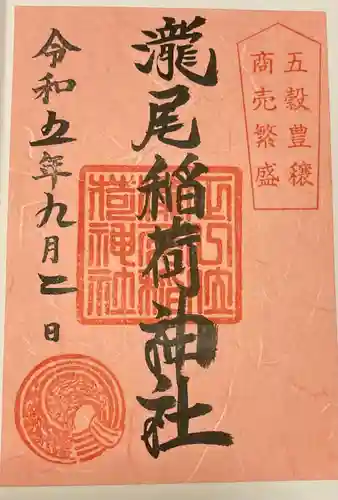 五穀豊穣
商売繁盛
瀧尾稲荷神社
令和五年九月二日